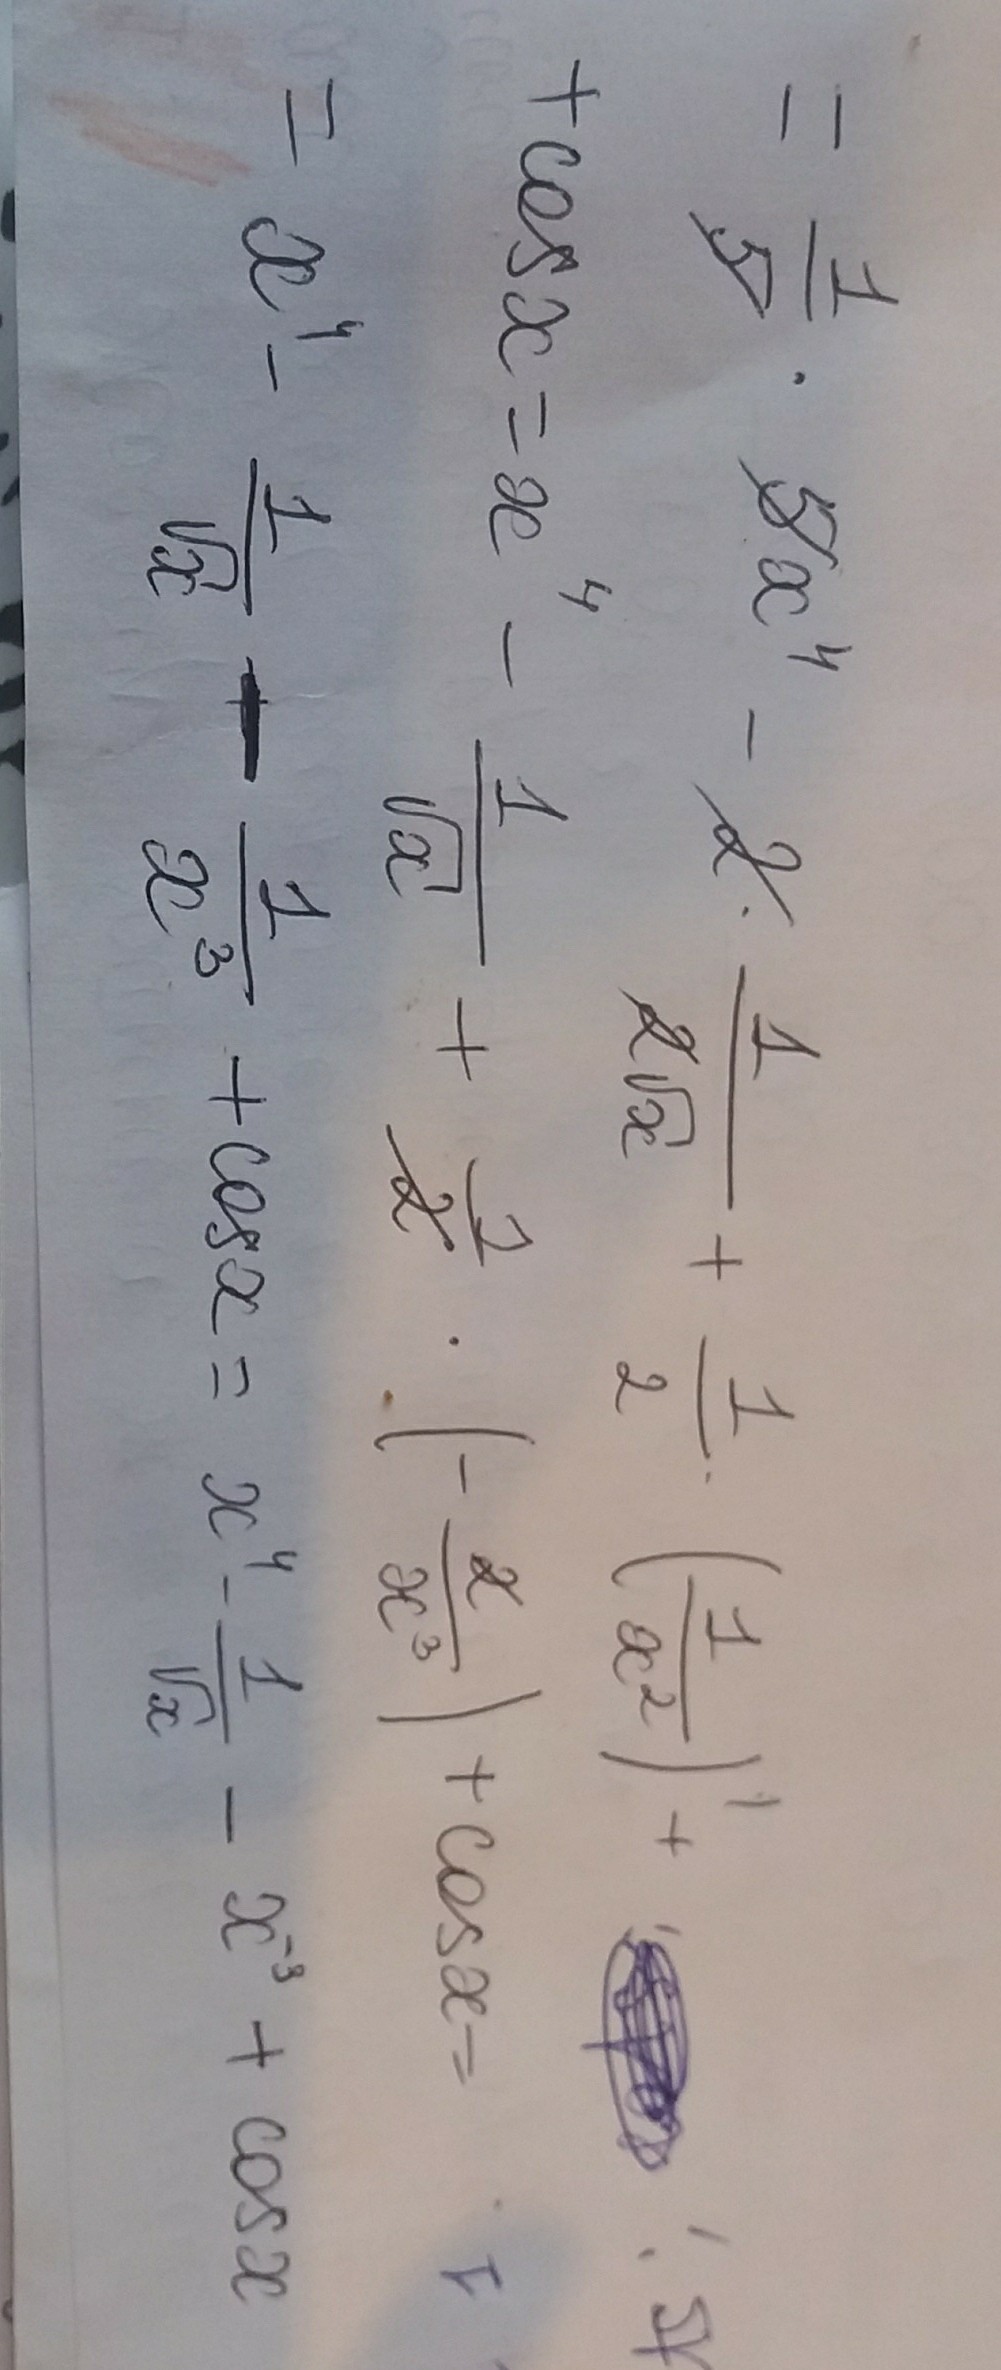 = 1/5 · 5x⁴ - 2 · 1/(2√x) + 1/2 · (1/x²)' +
+ cos x = x⁴ - 1/√x + 1/2 · (- 2/x³) + cos x =
= x⁴ - 1/√x - 1/x³ + cos x = x⁴ - 1/√x - x⁻³ + cos x